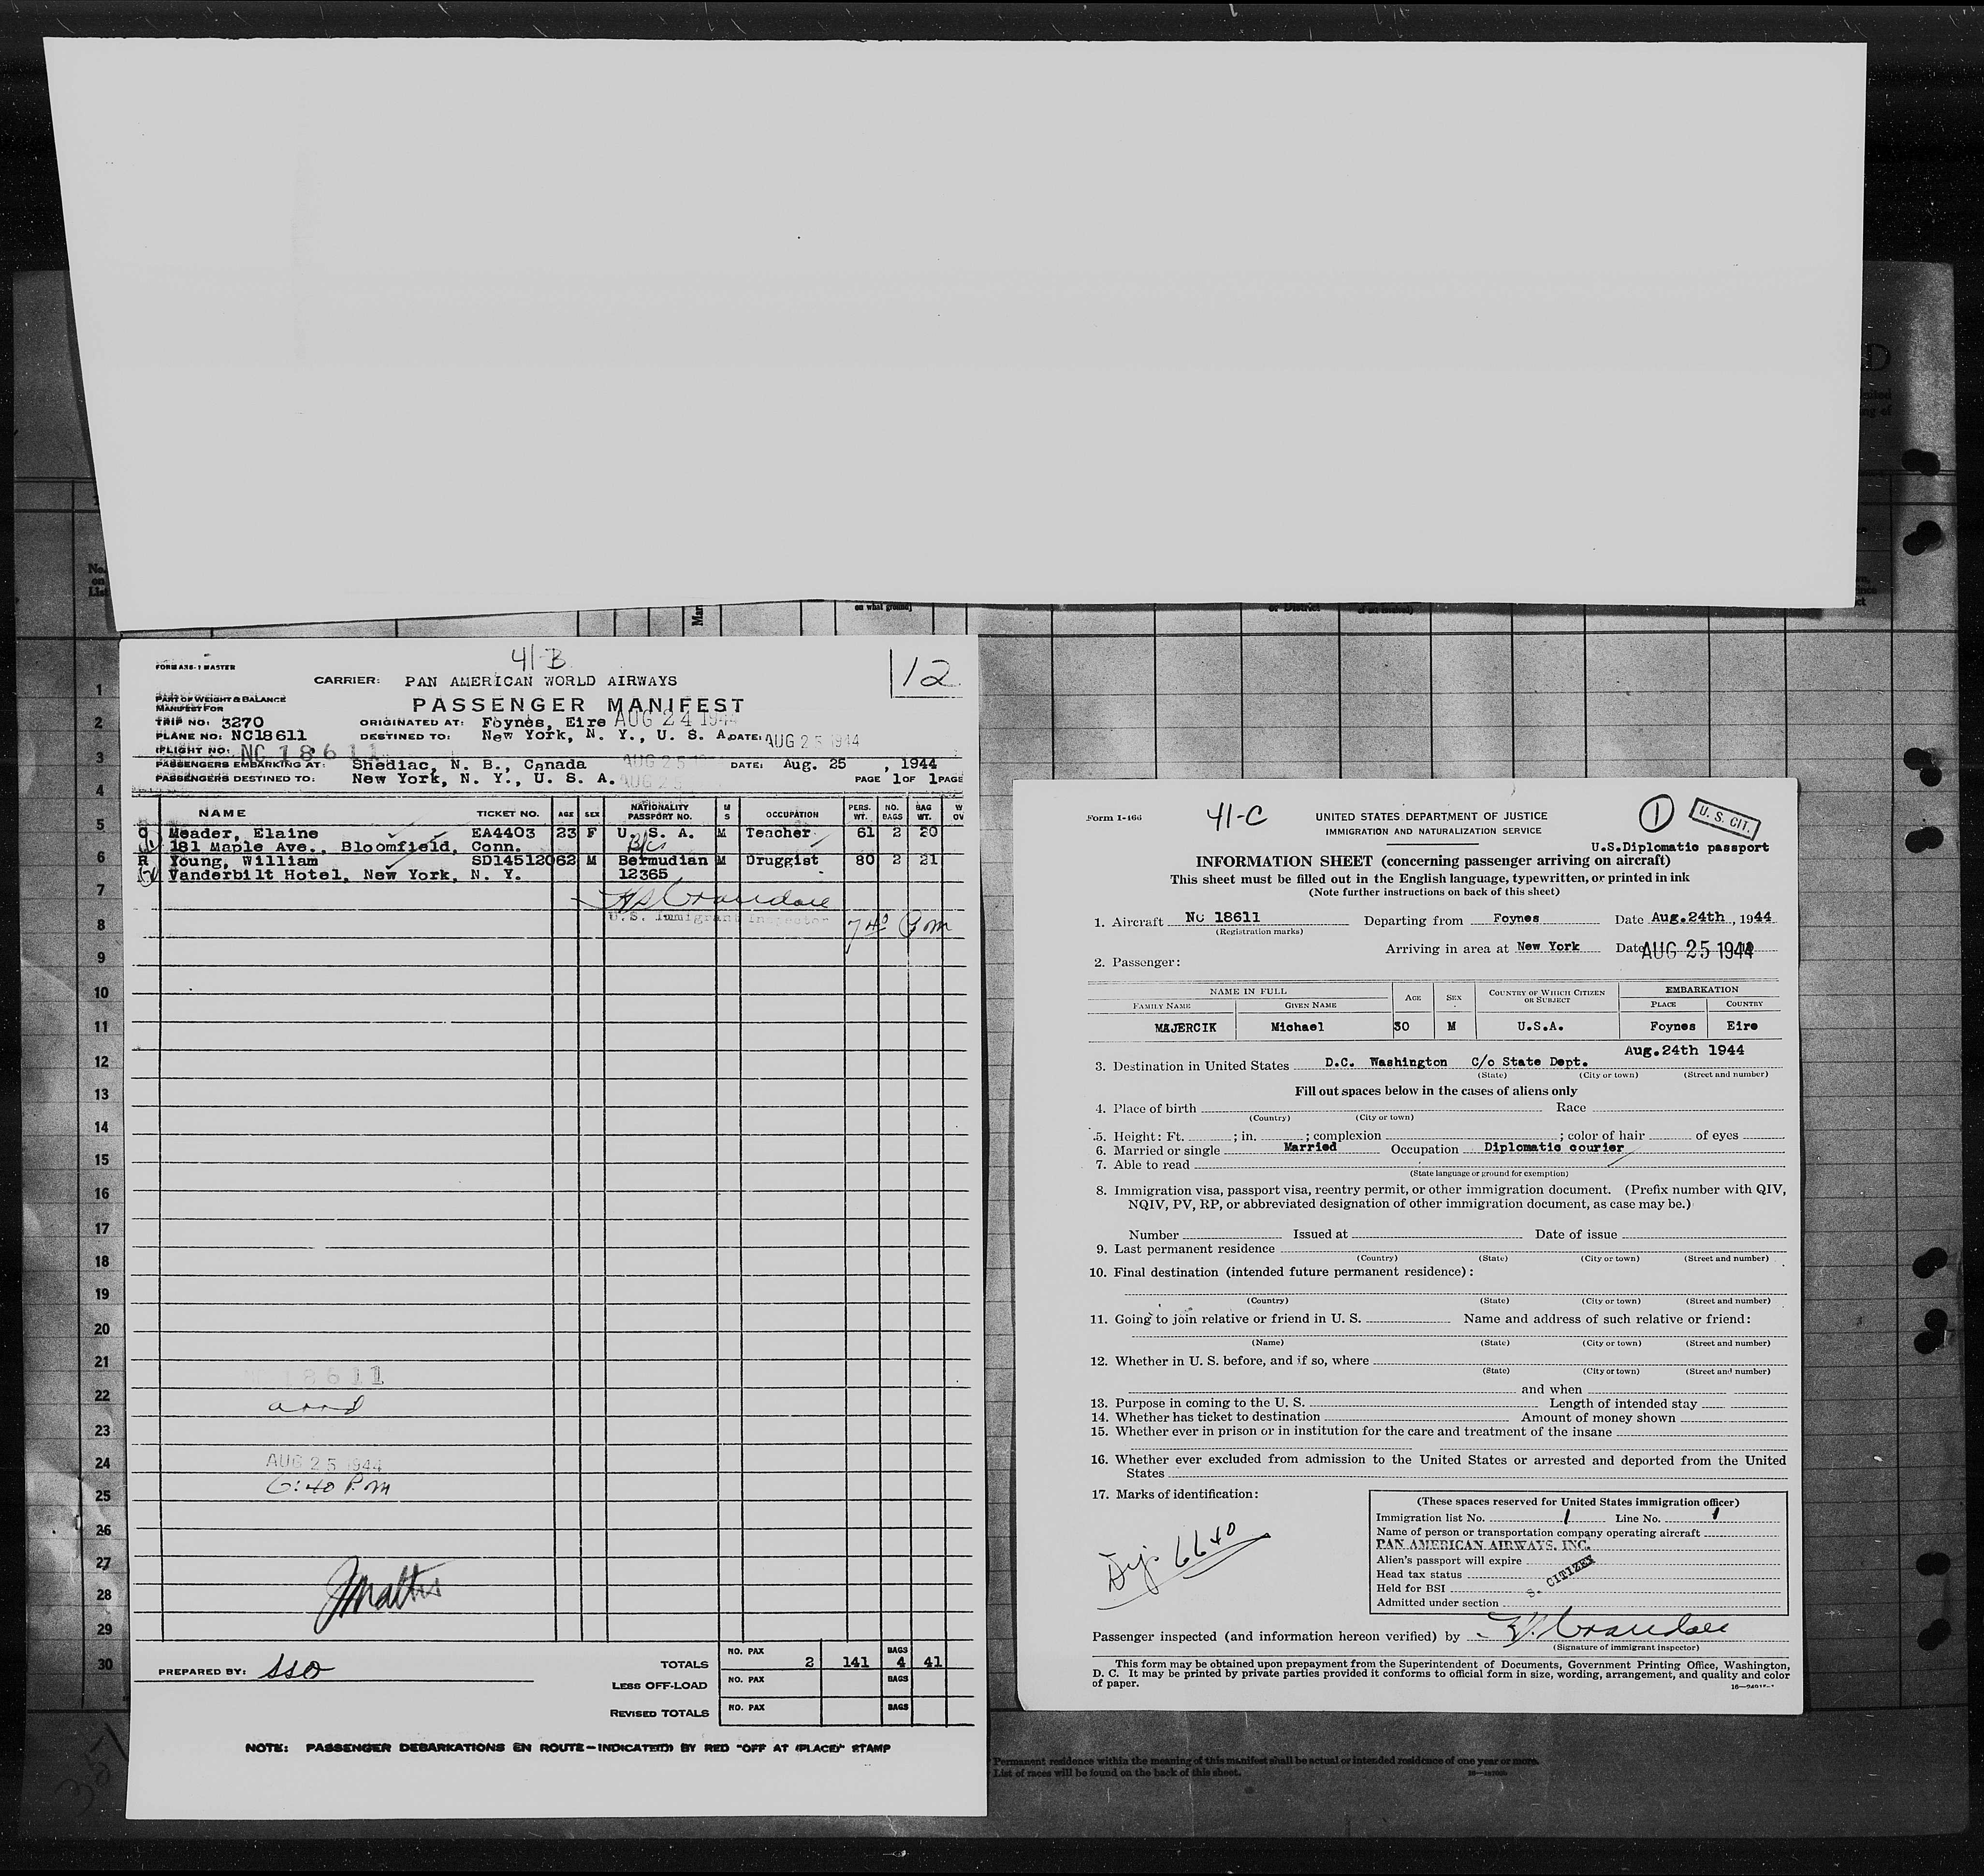 on what ground)
or District
No.
on
List
1
2
3
4
5
6
7
8
9
10
11
12
13
14
15
16
17
18
19
20
21
22
23
24
25
26
27
28
29
30
41-B
12
FORM A36-1 MASTER
CARRIER: PAN AMERICAN WORLD AIRWAYS
PART OF WEIGHT & BALANCE
MANIFEST FOR
PASSENGER MANIFEST
TRIP NO: 3270 ORIGINATED AT: Foynes, Eire AUG 24 1944
PLANE NO: NC18611 DESTINED TO: New York, N. Y., U. S. A. DATE: AUG 25 1944
FLIGHT NO: NC 18611
PASSENGERS EMBARKING AT: Shediac, N. B., Canada AUG 25 1944 DATE: Aug. 25 , 1944
PASSENGERS DESTINED TO: New York, N. Y., U. S. A. AUG 25 PAGE 1 OF 1 PAGE
NAME TICKET NO. AGE SEX NATIONALITY PASSPORT NO. M S OCCUPATION PERS. WT. NO. BAGS BAG WT.
Meader, Elaine EA4403 23 F U. S. A. M Teacher 61 2 20
181 Maple Ave., Bloomfield, Conn. B/C
R Young, William SD145120 62 M Bermudian M Druggist 80 2 21
Vanderbilt Hotel, New York, N. Y. 12365
U.S. Immigrant Inspector 7 40 P m
NC 18611
arrd
AUG 25 1944
6:40 P.m
PREPARED BY: SSO
TOTALS NO. PAX 2 141 BAGS 4 41
LESS OFF-LOAD NO. PAX BAGS
REVISED TOTALS NO. PAX BAGS
NOTE: PASSENGER DEBARKATIONS EN ROUTE—INDICATED BY RED "OFF AT (PLACE)" STAMP
Form I-466
41-C
UNITED STATES DEPARTMENT OF JUSTICE
IMMIGRATION AND NATURALIZATION SERVICE
1
U. S. CIT.
U.S.Diplomatic passport
INFORMATION SHEET (concerning passenger arriving on aircraft)
This sheet must be filled out in the English language, typewritten, or printed in ink
(Note further instructions on back of this sheet)
1. Aircraft Nc 18611 Departing from Foynes Date Aug.24th , 1944
(Registration marks)
Arriving in area at New York Date AUG 25 1944
2. Passenger:
NAME IN FULL AGE SEX COUNTRY OF WHICH CITIZEN OR SUBJECT EMBARKATION
FAMILY NAME GIVEN NAME PLACE COUNTRY
MAJERCIK Michael 30 M U.S.A. Foynes Eire
Aug.24th 1944
3. Destination in United States D.C. Washington C/o State Dept.
(State) (City or town) (Street and number)
Fill out spaces below in the cases of aliens only
4. Place of birth Race
(Country) (City or town)
5. Height: Ft. ; in. ; complexion ; color of hair of eyes
6. Married or single Married Occupation Diplomatic courier
7. Able to read
(State language or ground for exemption)
8. Immigration visa, passport visa, reentry permit, or other immigration document. (Prefix number with QIV,
NQIV, PV, RP, or abbreviated designation of other immigration document, as case may be.)
Number Issued at Date of issue
9. Last permanent residence
(Country) (State) (City or town) (Street and number)
10. Final destination (intended future permanent residence):
(Country) (State) (City or town) (Street and number)
11. Going to join relative or friend in U. S. Name and address of such relative or friend:
(Name) (State) (City or town) (Street and number)
12. Whether in U. S. before, and if so, where
(State) (City or town) (Street and number)
and when
13. Purpose in coming to the U. S. Length of intended stay
14. Whether has ticket to destination Amount of money shown
15. Whether ever in prison or in institution for the care and treatment of the insane
16. Whether ever excluded from admission to the United States or arrested and deported from the United
States
17. Marks of identification:
Dip. 6640
(These spaces reserved for United States immigration officer)
Immigration list No. 1 Line No. 1
Name of person or transportation company operating aircraft
PAN AMERICAN AIRWAYS, INC.
Alien's passport will expire
Head tax status
Held for BSI
S. CITIZEN
Admitted under section
Passenger inspected (and information hereon verified) by
(Signature of immigrant inspector)
This form may be obtained upon prepayment from the Superintendent of Documents, Government Printing Office, Washington,
D. C. It may be printed by private parties provided it conforms to official form in size, wording, arrangement, and quality and color
of paper.
Permanent residence within the meaning of this manifest shall be actual or intended residence of one year or more.
List of races will be found on the back of this sheet.